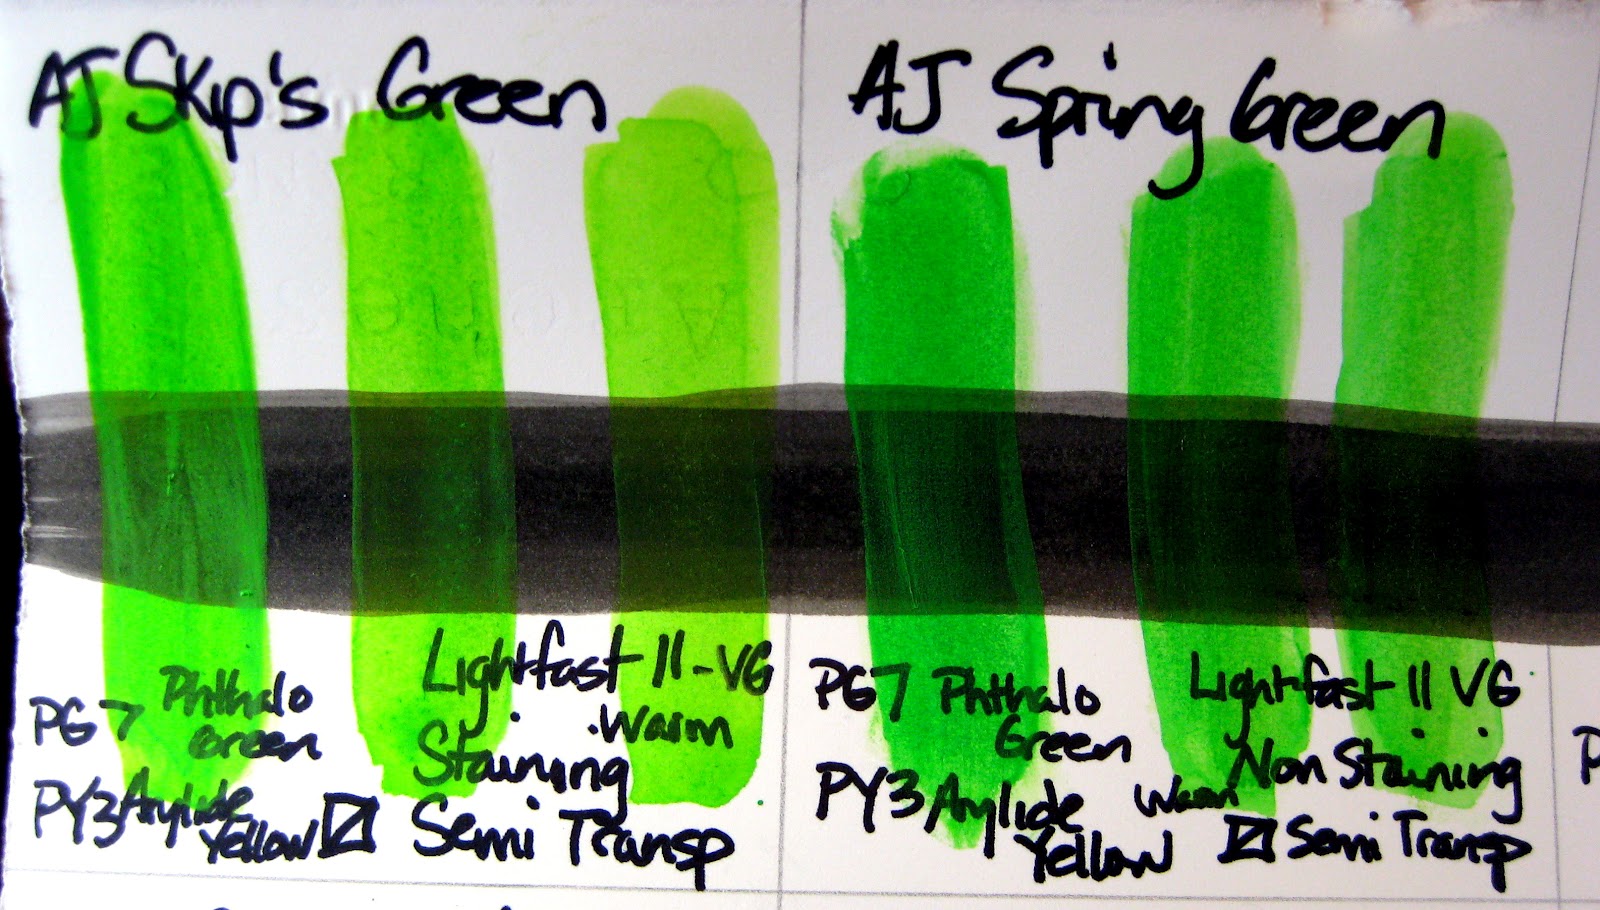 AJ Skip's Green
PG7 Phthalo
Green
PY3 Arylide
Yellow
Lightfast II-VG
Warm
Staining
Semi Transp
AJ Spring Green
PG7 Phthalo
Green
PY3 Arylide
Yellow
Lightfast II VG
Warm Non Staining
Semi Transp
P